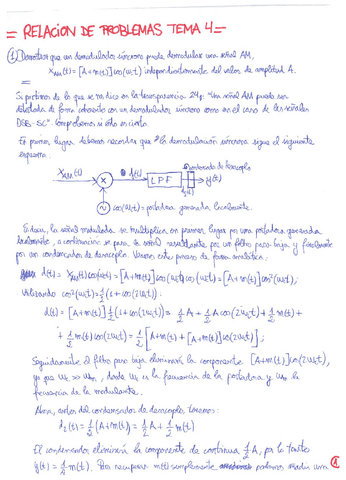 = RELACIÓN DE PROBLEMAS TEMA 4 =
① Demostrar que un demodulador síncrono puede demodular una señal AM,
x_AM(t) = [A+m(t)] cos(ω_c t) independientemente del valor de amplitud A.
Si partimos de lo que se nos dice en la transparencia 24: "Una señal AM puede ser
detectada de forma coherente con un demodulador síncrono como en el caso de las señales
DSB-SC". Comprobemos si esto es cierto.
En primer lugar, debemos recordar que la demodulación síncrona sigue el siguiente
esquema:
condensador de desacoplo
x_AM(t) × d(t) LPF d_1(t) y(t)
cos(ω_c t) = portadora generada localmente.
Es decir, la señal modulada, se multiplica en primer lugar por una portadora generada
localmente, a continuación se pasa la señal resultante por un filtro paso baja y finalmente
por un condensador de desacoplo. Veamos este proceso de forma analítica:
d(t) = x_AM(t) cos(ω_c t) = [A+m(t)] cos(ω_c t) cos(ω_c t) = [A+m(t)] cos²(ω_c t);
Utilizando cos²(ω_c t) = 1/2 (1+cos(2ω_c t)):
d(t) = [A+m(t)] 1/2 (1+cos(2ω_c t)) = 1/2 A + 1/2 A cos(2ω_c t) + 1/2 m(t) +
+ 1/2 m(t) cos(2ω_c t) = 1/2 [A+m(t) + [A+m(t)] cos(2ω_c t)];
Seguidamente el filtro paso baja eliminará la componente [A+m(t)] cos(2ω_c t),
ya que ω_c >> ω_m, donde ω_c es la frecuencia de la portadora y ω_m la
frecuencia de la modulante.
Ahora, antes del condensador de desacoplo, tenemos:
d_1(t) = 1/2 (A+m(t)) = 1/2 A + 1/2 m(t)
El condensador eliminará la componente de continua 1/2 A, por lo tanto
y(t) = 1/2 m(t). Para recuperar m(t) simplemente podríamos añadir un
①